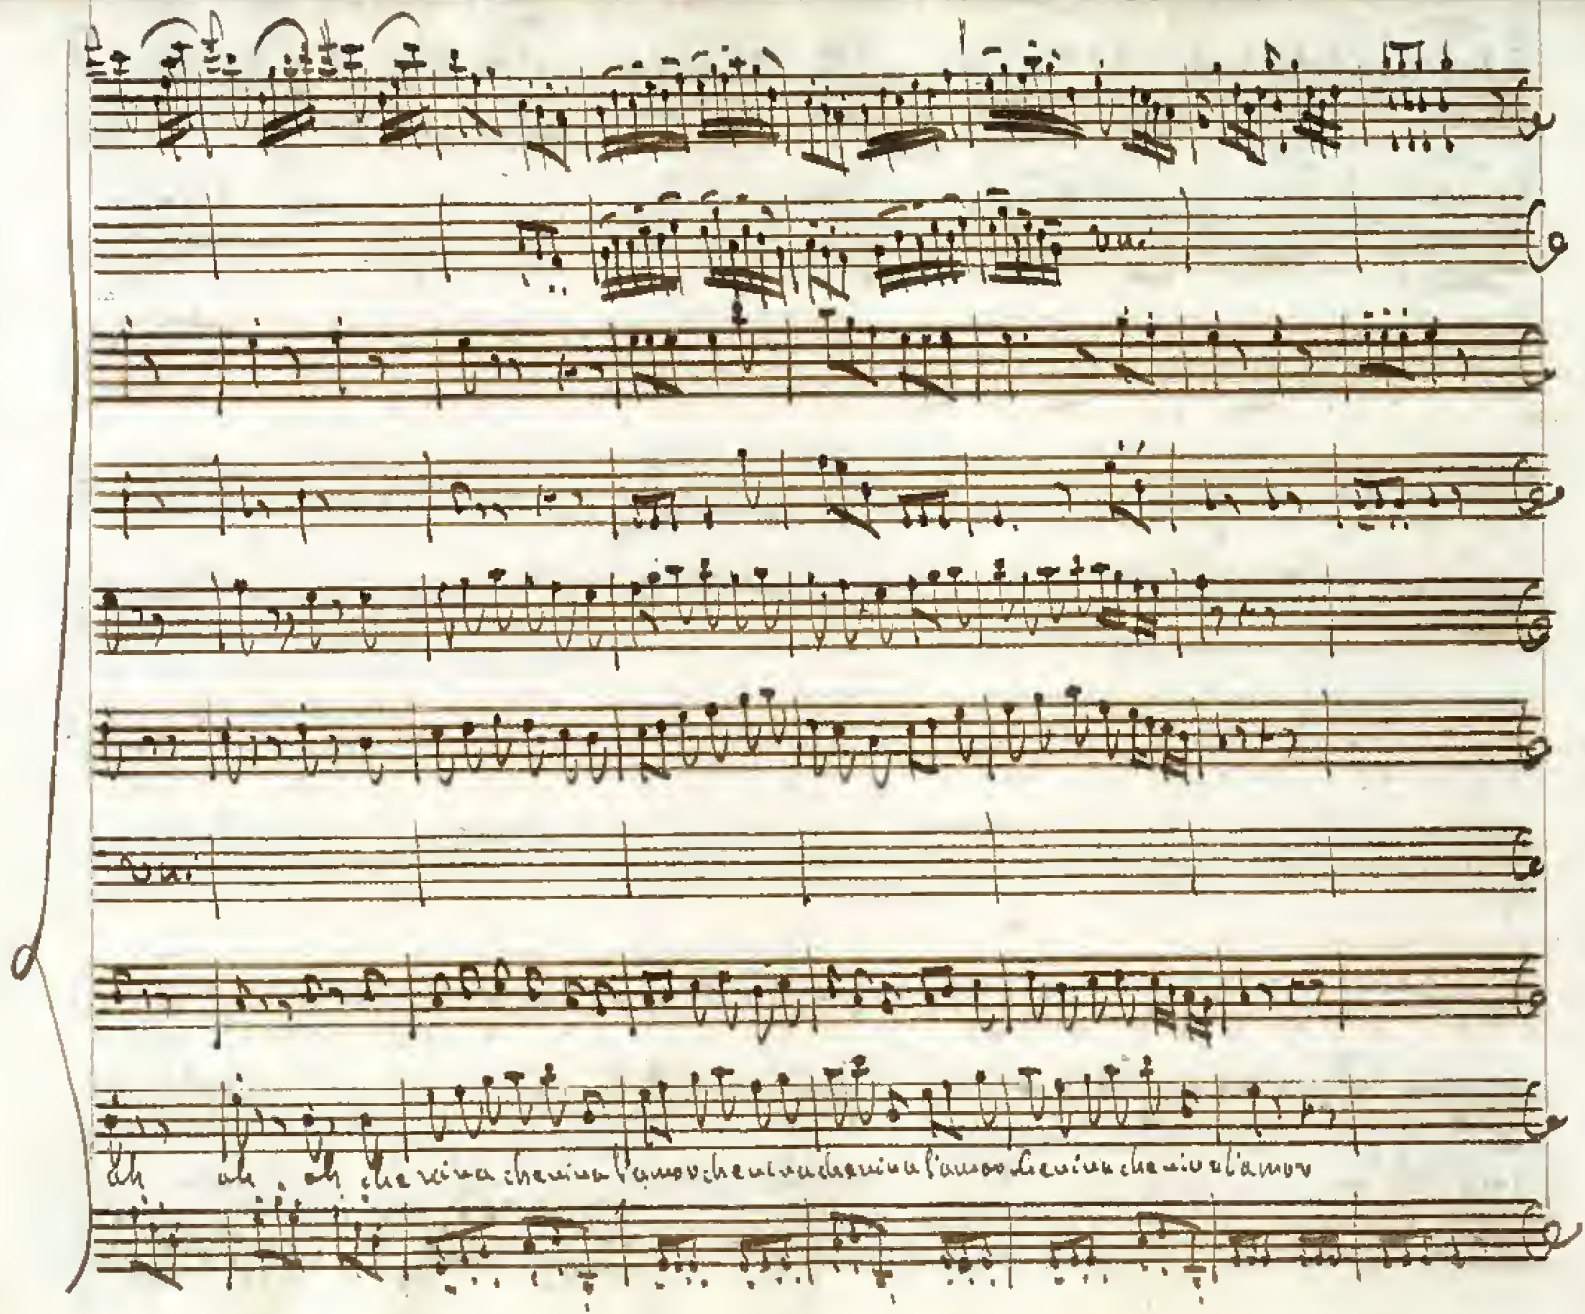 uni:
uni:
ah ah, ah che viva che viva l'amor che viva che viva l'amor che viva che viva l'amor